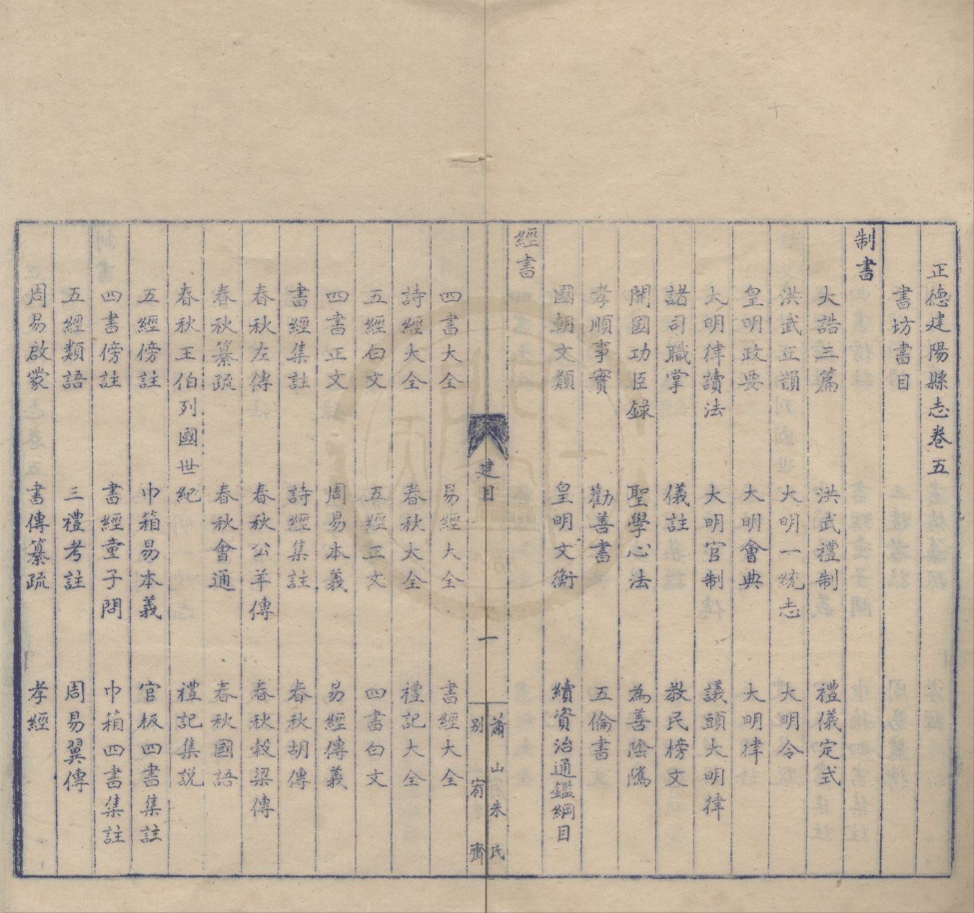 正德建陽縣志卷五
書坊書目
制書
大誥三篇 洪武禮制 禮儀定式
洪武正韻 大明一統志 大明令
皇明政要 大明會典 大明律
大明律讀法 大明官制 議頭大明律
諸司職掌 儀註 教民榜文
開國功臣錄 聖學心法 為善陰隲
孝順事實 勸善書 五倫書
國朝文類 皇明文衡 續資治通鑑綱目
經書
建目
一
蕭山朱氏
別宥齋
四書大全 易經大全 書經大全
詩經大全 春秋大全 禮記大全
五經白文 五經正文 四書白文
四書正文 周易本義 易經傳義
書經集註 詩經集註 春秋胡傳
春秋左傳 春秋公羊傳 春秋穀梁傳
春秋纂疏 春秋會通 春秋國語
春秋王伯列國世紀 禮記集説
五經傍註 巾箱易本義 官板四書集註
四書傍註 書經童子問 巾箱四書集註
五經類語 三禮考註 周易翼傳
周易啟蒙 書傳纂疏 孝經